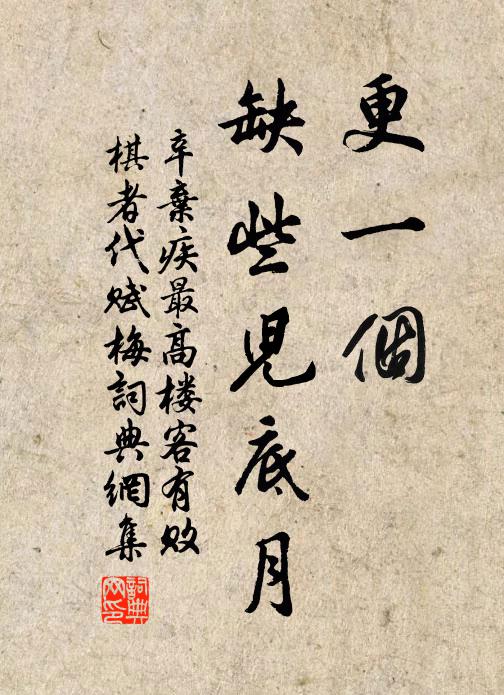 更一個
缺些兒底月
辛棄疾最高楼客有败
棋者代赋梅詞典網集
詞典